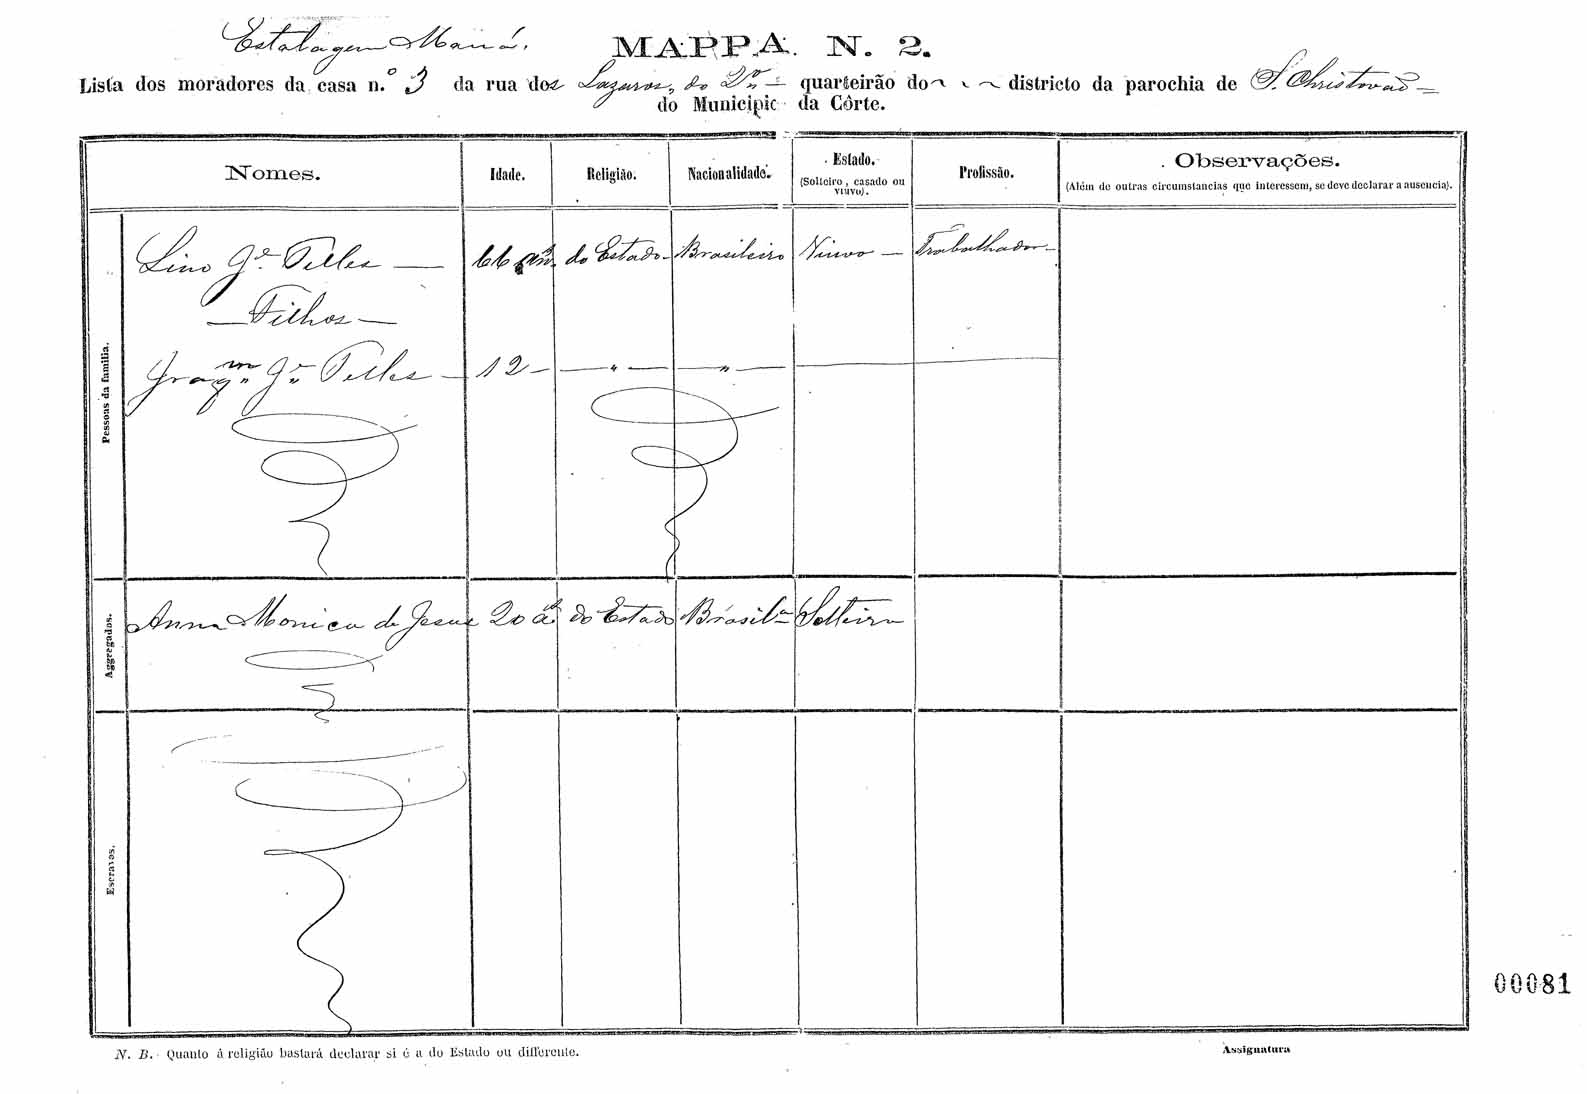 Estalagem Mauá.
MAPPA N. 2.
Lista dos moradores da casa n.º 3 da rua dos Lazaros, do 2º quarteirão do districto da parochia de S. Christovão
do Municipio da Côrte.
Nomes. Idade. Religião. Nacionalidade. Estado. (Solteiro, casado ou viuvo). Profissão. Observações. (Além de outras circumstancias que interessem, se deve declarar a ausencia).
Pessoas da familia.
Lino Gs. Telles — 66 ans. do Estado - Brasileiro Viuvo — Trabalhador -
— Filhos —
Joaqm. Gs. Telles — 12 — — " — — " —
Aggregados.
Anna Monica de Jesus 20 as. do Estado Brasila. Solteira
Escravos.
N. B. Quanto á religião bastará declarar si é a do Estado ou differente.
Assignatura
00081